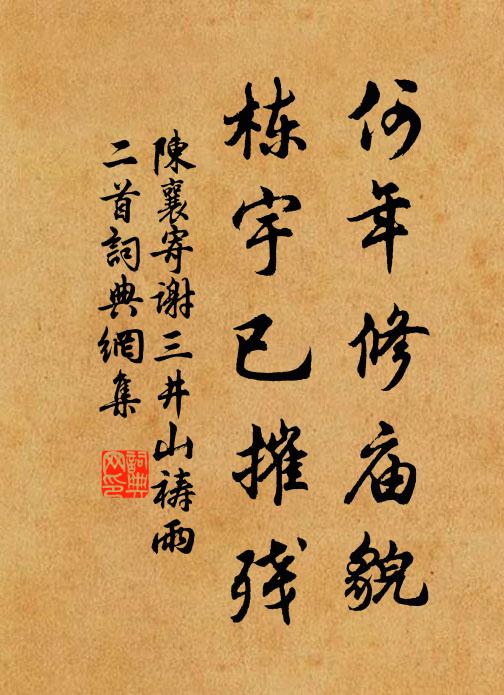 何年修庙貌
栋宇已摧残
陳襄寄谢三井山祷雨
二首詞典網集
詞典
网印